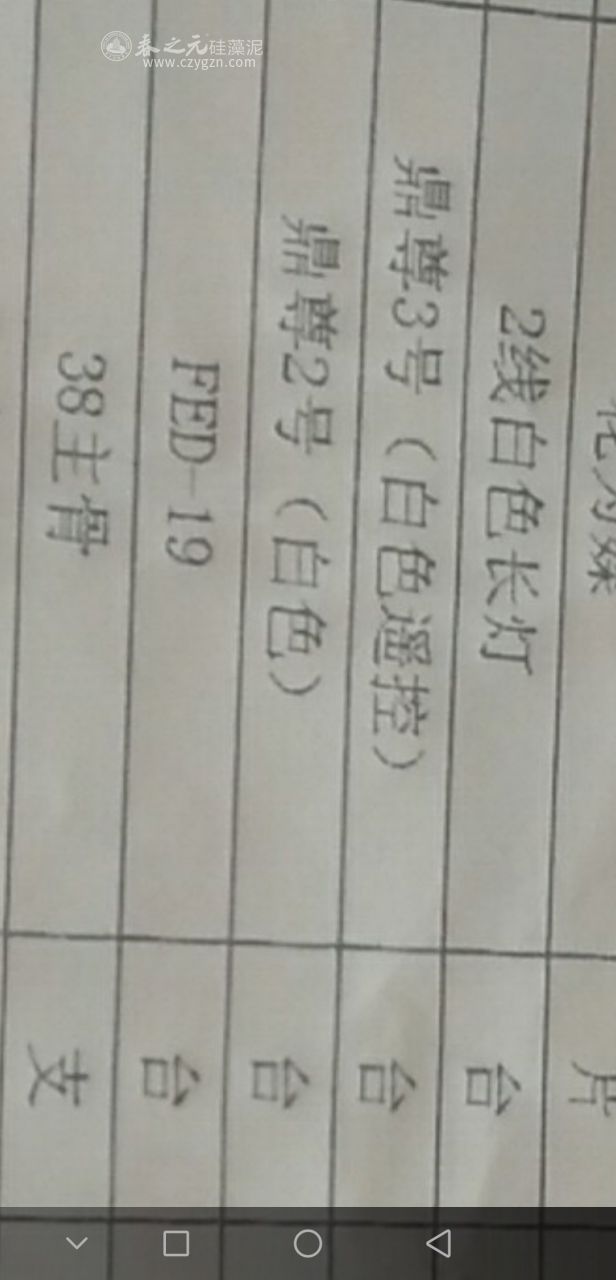 春之元硅藻泥
www.czygzn.com
片
2线白色长灯 台
鼎尊3号（白色遥控） 台
鼎尊2号（白色） 台
FED-19 台
38主骨 支